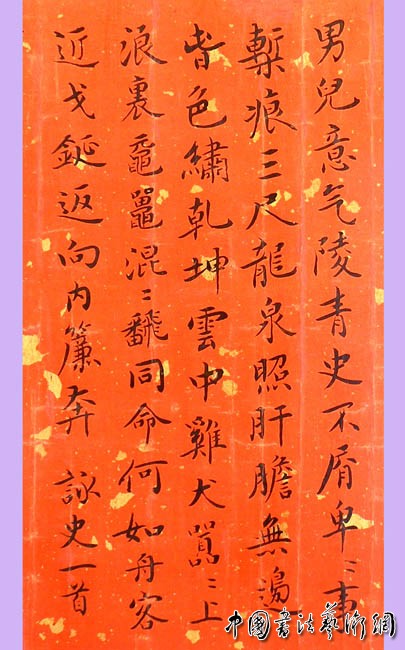 男兒意气陵青史不屑卑〻事
槧痕三尺龍泉照肝膽無邊
色繡乾坤雲中雞犬嚣〻上
浪裏黿鼉混〻飜同命何如舟客
近戈鋋返向内簾奔 詠史一首
中國書法藝術網